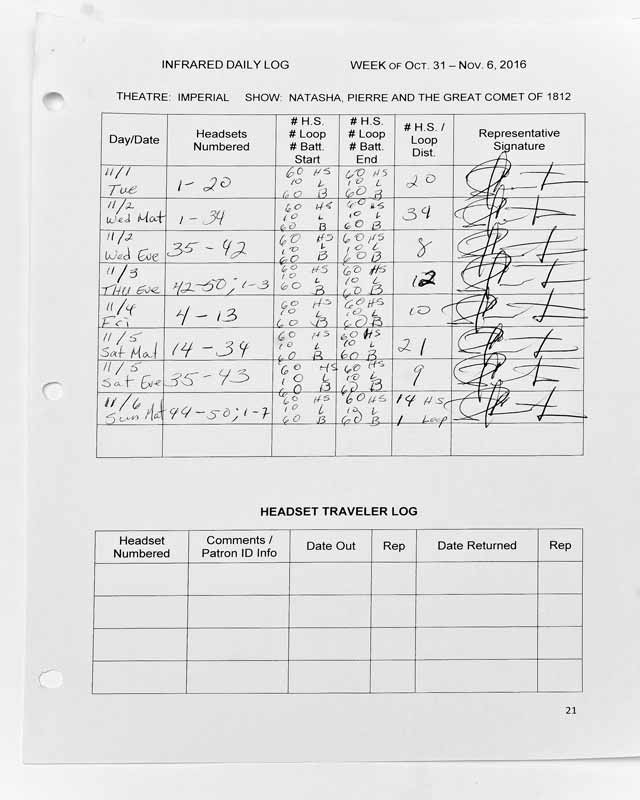 INFRARED DAILY LOG WEEK OF OCT. 31 – NOV. 6, 2016
THEATRE: IMPERIAL SHOW: NATASHA, PIERRE AND THE GREAT COMET OF 1812
Day/Date Headsets Numbered # H.S. # Loop # Batt. Start # H.S. # Loop # Batt. End # H.S. / Loop Dist. Representative Signature
11/1 Tue 1-20 60 HS 10 L 60 B 60 HS 10 L 60 B 20
11/2 Wed Mat 1-34 60 HS 10 L 60 B 60 HS 10 L 60 B 34
11/2 Wed Eve 35-42 60 HS 10 L 60 B 60 HS 10 L 60 B 8
11/3 THU Eve 42-50; 1-3 60 HS 10 L 60 B 60 HS 10 L 60 B 12
11/4 Fri 4-13 60 HS 10 L 60 B 60 HS 10 L 60 B 10
11/5 Sat Mat 14-34 60 HS 10 L 60 B 60 HS 10 L 60 B 21
11/5 Sat Eve 35-43 60 HS 10 L 60 B 60 HS 10 L 60 B 9
11/6 Sun Mat 44-50; 1-7 60 HS 10 L 60 B 60 HS 10 L 60 B 14 HS 1 Loop
HEADSET TRAVELER LOG
Headset Numbered Comments / Patron ID Info Date Out Rep Date Returned Rep
21